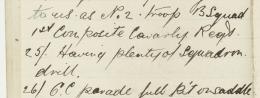 to us as No. 2 Troop B Squad
1st Composite Cavalry Regt.
25/ Having plenty of Squadron
drill.
26/ C.C. parade full kit on saddle